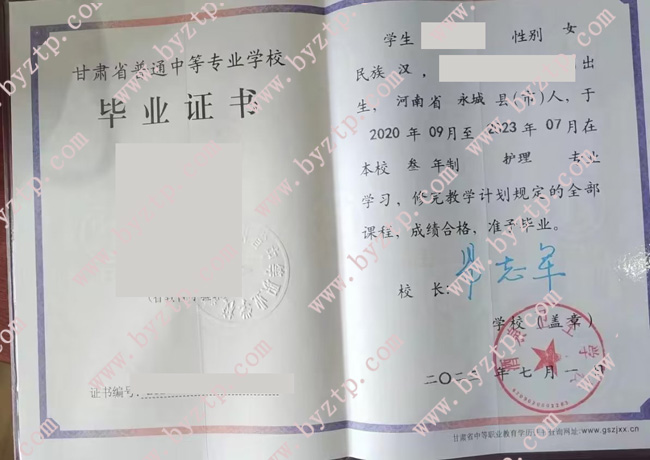 甘肃省普通中等专业学校
毕业证书
证书编号:
学生 性别 女
民族 汉, 出
生, 河南省 永城 县(市)人, 于
2020 年 09月至 2023 年 07 月在
本校 叁 年制 护理 专业
学习, 修完教学计划规定的全部
课程, 成绩合格, 准予毕业。
校 长:
学校 (盖章)
年 七 月 一 日
甘肃省中等职业教育学历证书查询网址:www.gszjxx.cn
www.byztp.com